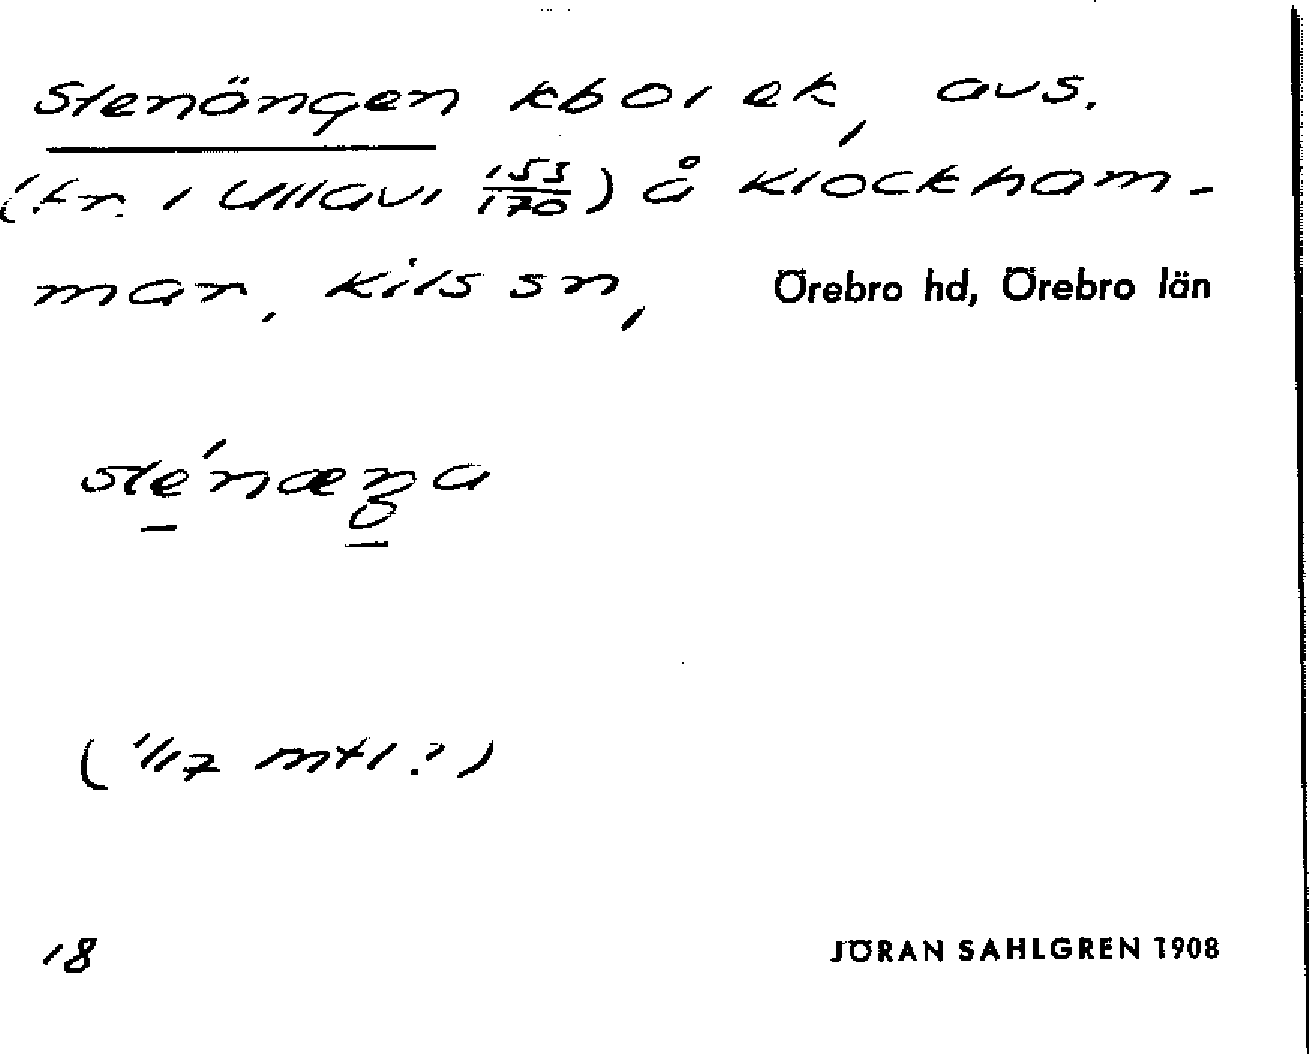 Stenängen kbol ek, avs.
(fr. i Ullavi 153/170) å Klockham-
mar, Kils sn, Örebro hd, Örebro län
sté̱næŋ̱a
(1/17 mtl.?)
18 JÖRAN SAHLGREN 1908